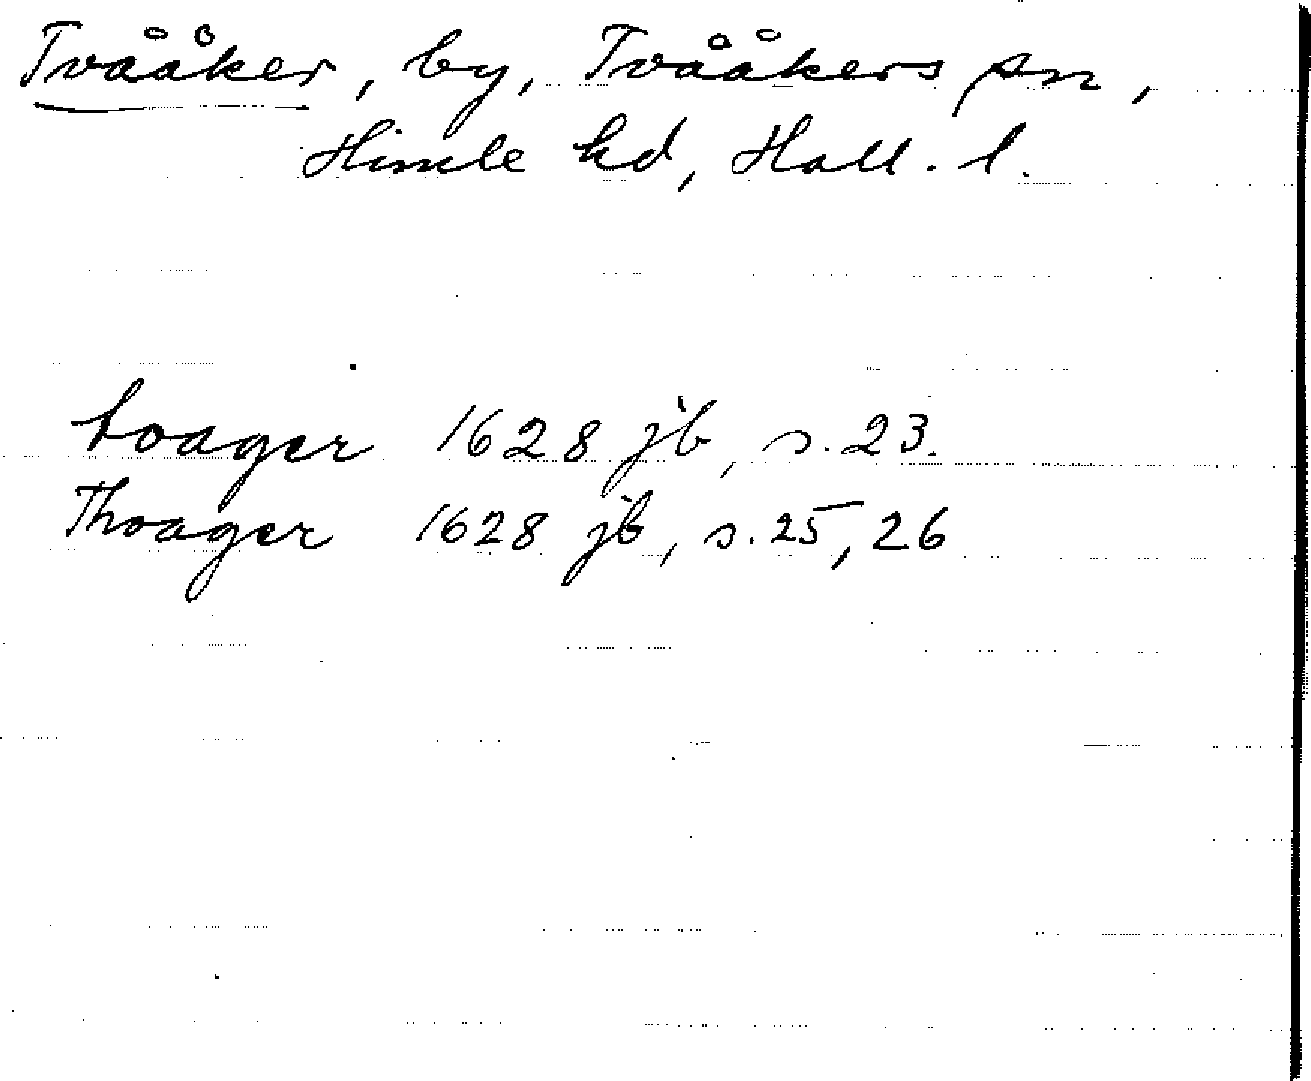 Tvååker, by, Tvååkers sn,
Himle hd, Hall. l.
toager 1628 jb, s. 23.
Thoager 1628 jb, s. 25, 26